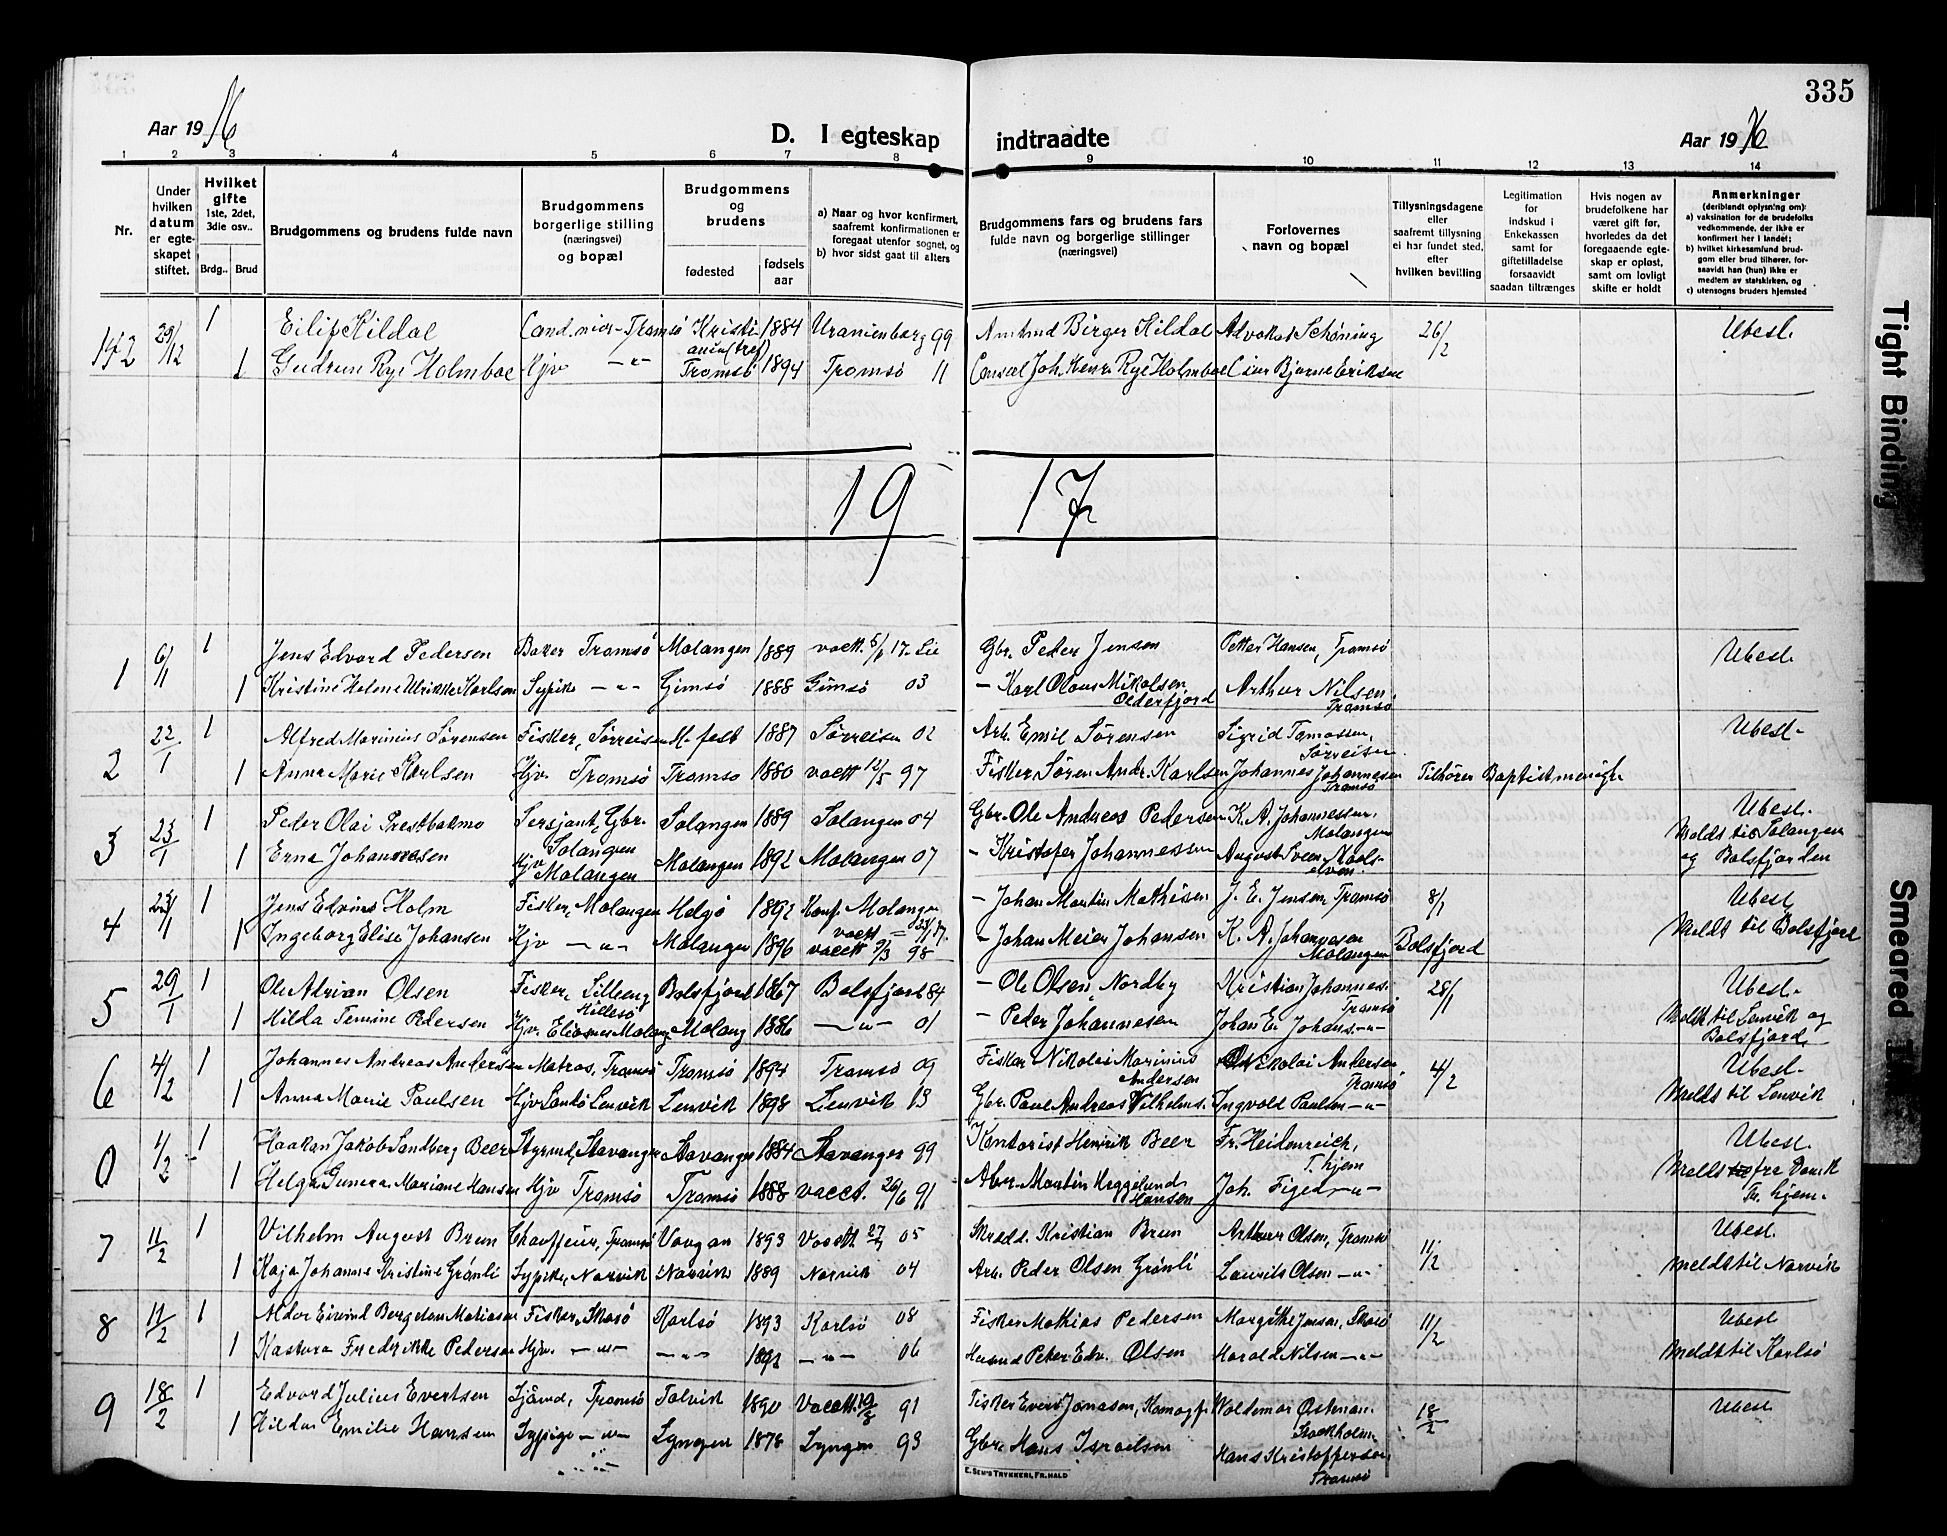 335
Aar 1916
D. I egteskap indtraadte
Aar 1916
1 2 3 4 5 6 7 8 9 10 11 12 13 14
Nr.
Under hvilken datum er egte- skapet stiftet.
Hvilket gifte 1ste, 2det, 3die osv..
Brdg.. Brud
Brudgommens og brudens fulde navn
Brudgommens borgerlige stilling (næringsvei) og bopæl
Brudgommens og brudens
fødested
fødsels aar
a) Naar og hvor konfirmert, saafremt konfirmationen er foregaat utenfor sognet, og
b) hvor sidst gaat til alters
Brudgommens fars og brudens fars fulde navn og borgerlige stillinger (næringsvei)
Forlovernes navn og bopæl
Tillysningsdagene eller saafremt tillysning ei har fundet sted, efter hvilken bevilling
Legitimation for indskud i Enkekassen samt for giftetilladelse forsaavidt saadan tiltrænges
Hvis nogen av brudefolkene har været gift før, hvorledes da det foregaaende egte- skap er opløst, samt om lovligt skifte er holdt
Anmerkninger (deriblandt oplysning om):
a) vaksination for de brudefolks vedkommende, der ikke er konfirmert her i landet;
b) hvilket kirkesamfund brud- gom eller brud tilhører, for- saavidt han (hun) ikke er medlem av statskirken, og
c) utensogns bruders hjemsted
152 29/12 1 Eilif Kildal Cand. Tromsø Kristi ania 1884 Uranienborg 99 Amtmd Birger Kildal Advokat Schøning 26/2 Ubesl.
1 Gudrun Rye Holmboe Hjv —"— Tromsø 1894 Tromsø 11 Consul Joh. Henr. Rye Holmboe Bjarne Eriksen
19 17
1 6/1 1 Jens Edvard Pedersen Baker Tromsø Malangen 1889 vacc. 17 Gbr. Peder Jensen Petter Hansen, Tromsø Ubesl.
1 Kristine Helene Ulrikke Karlsen Sypike —"— Gimsø 1888 Gimsø 03 – Karl Olaus Mikalsen Olderfjord Arthur Nilsen Tromsø
2 22/1 1 Alfred Marinius Sørensen Fisker, Sørreisen H.fest 1887 Sørreisen 02 Arb. Emil Sørensen Sigrid Tomassen, Sørreisen Ubesl.
1 Anna Marie Karlsen Hjv. Tromsø Tromsø 1880 vacc 12/5 97 Fisker Søren Andr. Karlsen Johannes Johannesen Tromsø Tilhører Baptistmenigh.
3 23/1 1 Peder Olai Prestbakmo Sersjant, Gbr. Salangen Salangen 1889 Salangen 04 Gbr. Ole Andreas Pedersen K. A. Johannessen, Malangen Ubesl.
1 Erna Johannesen Hjv Malangen Malangen 1892 Malangen 07 – Kristofer Johannessen August Sveen Maals- elven. Meldt til Salangen og Balsfjorden
4 23/1 1 Jens Edvins Holm Fisker, Malangen Helgø 1892 Konf. Malangen – Johan Martin Mathisen J. E. Jensen Tromsø 8/1 Ubesl.
1 Ingeborg Elise Johansen Hjv —"— Malangen 1896 vacc 9/3 98 – Johan Meier Johansen K. A. Johannesen Malangen Balsfjord Meldt til Balsfjord
5 29/1 1 Ole Adrian Olsen Fisker, Hillesø Balsfjord 1867 Balsfjord 84 – Ole Olsen Nordby Kristian Johannes. Tromsø 28/1 Ubesl.
1 Hilda Pedersen Hjv. Malang 1886 —"— 01 – Peder Johannesen Johan E. Johans. —"— Meldt til Lenvik og Balsfjord.
6 4/2 1 Johannes Andreas Andersen Matros, Tromsø Tromsø 1894 Tromsø 09 Fisker Nikolai Marinius Andersen Nikolai Andersen Tromsø 4/2 Ubesl.
1 Anna Marie Paulsen Hjv Lenvik Lenvik 1898 Lenvik 13 Gbr. Paul Andreas Vilhelms. Ingvald Paulsen —"— Meldt til Lenvik
0 4/2 1 Haakon Jakob Sandberg Beer Styrmd, Stavanger Stavanger 1884 Stavanger 99 Kontorist Henrik Beer Fr. Heidenreich, T. hjem Ubesl.
1 Helga Gunera Mariane Hansen Hjv Tromsø Tromsø 1888 vacct. 26/6 91 Martin Heggelund Hansen Joh. —"— Meldt fra Dansk Fr. hjem.
7 11/2 1 Vilhelm August Brun Chauffeur, Tromsø Vaagan 1893 Vacct. 05 Skrædd. Kristian Brun Arthur Olsen, Tromsø 11/2 Ubesl.
1 Kaja Johanne Kristine Grønli Sypike, Narvik Narvik 1889 Narvik 04 Arb. Peder Olsen Grønli Laurits Olsen —"— Meldt til Narvik
8 11/2 1 Aldor Eivind Bergeton Matiasen Fisker, Karlsø 1893 Karlsø 08 Fisker Mathias Pedersen Margithe Jensen, 11/2 Ubesl
1 Kastora Fredrikke Pedersen Hjv. —"— —"— 1892 —"— 06 Peter Edv. Olsen Harald Nilsen —"— Meldt til Karlsø
9 18/2 1 Edvard Julius Evertsen Sjømd, Tromsø Talvik 1890 Vacct. 19/8 91 Fisker Evert Jonassen, Waldemar Østman, Stockholm 18/2 Ubesl
1 Hilda Emilie Hansen Sypige —"— Lyngen 1878 Lyngen 93 Gbr. Hans Israelsen Hans Kristoffersen, Tromsø
E. SEM'S TRYKKERI, FR.HALD
Tight Binding
Smeared Ink